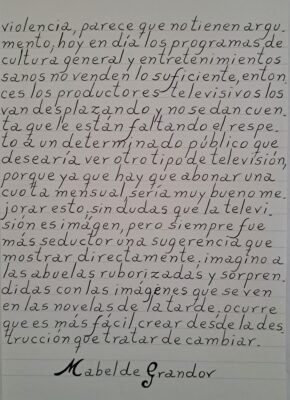 violencia, parece que no tienen argu-
mento, hoy en día los programas de
cultura general y entretenimientos
sanos no venden lo suficiente, enton-
ces los productores televisivos los
van desplazando y no se dan cuen-
ta que le están faltando el respe-
to a un determinado público que
desearía ver otro tipo de televisión,
porque ya que hay que abonar una
cuota mensual, sería muy bueno me-
jorar esto, sin dudas que la televi-
sión es imágen, pero siempre fue
más seductor una sugerencia que
mostrar directamente, imagino a
las abuelas ruborizadas y sorpren-
didas con las imágenes que se ven
en las novelas de la tarde, ocurre
que es más fácil crear desde la des-
trucción que tratar de cambiar.
Mabel de Grandov